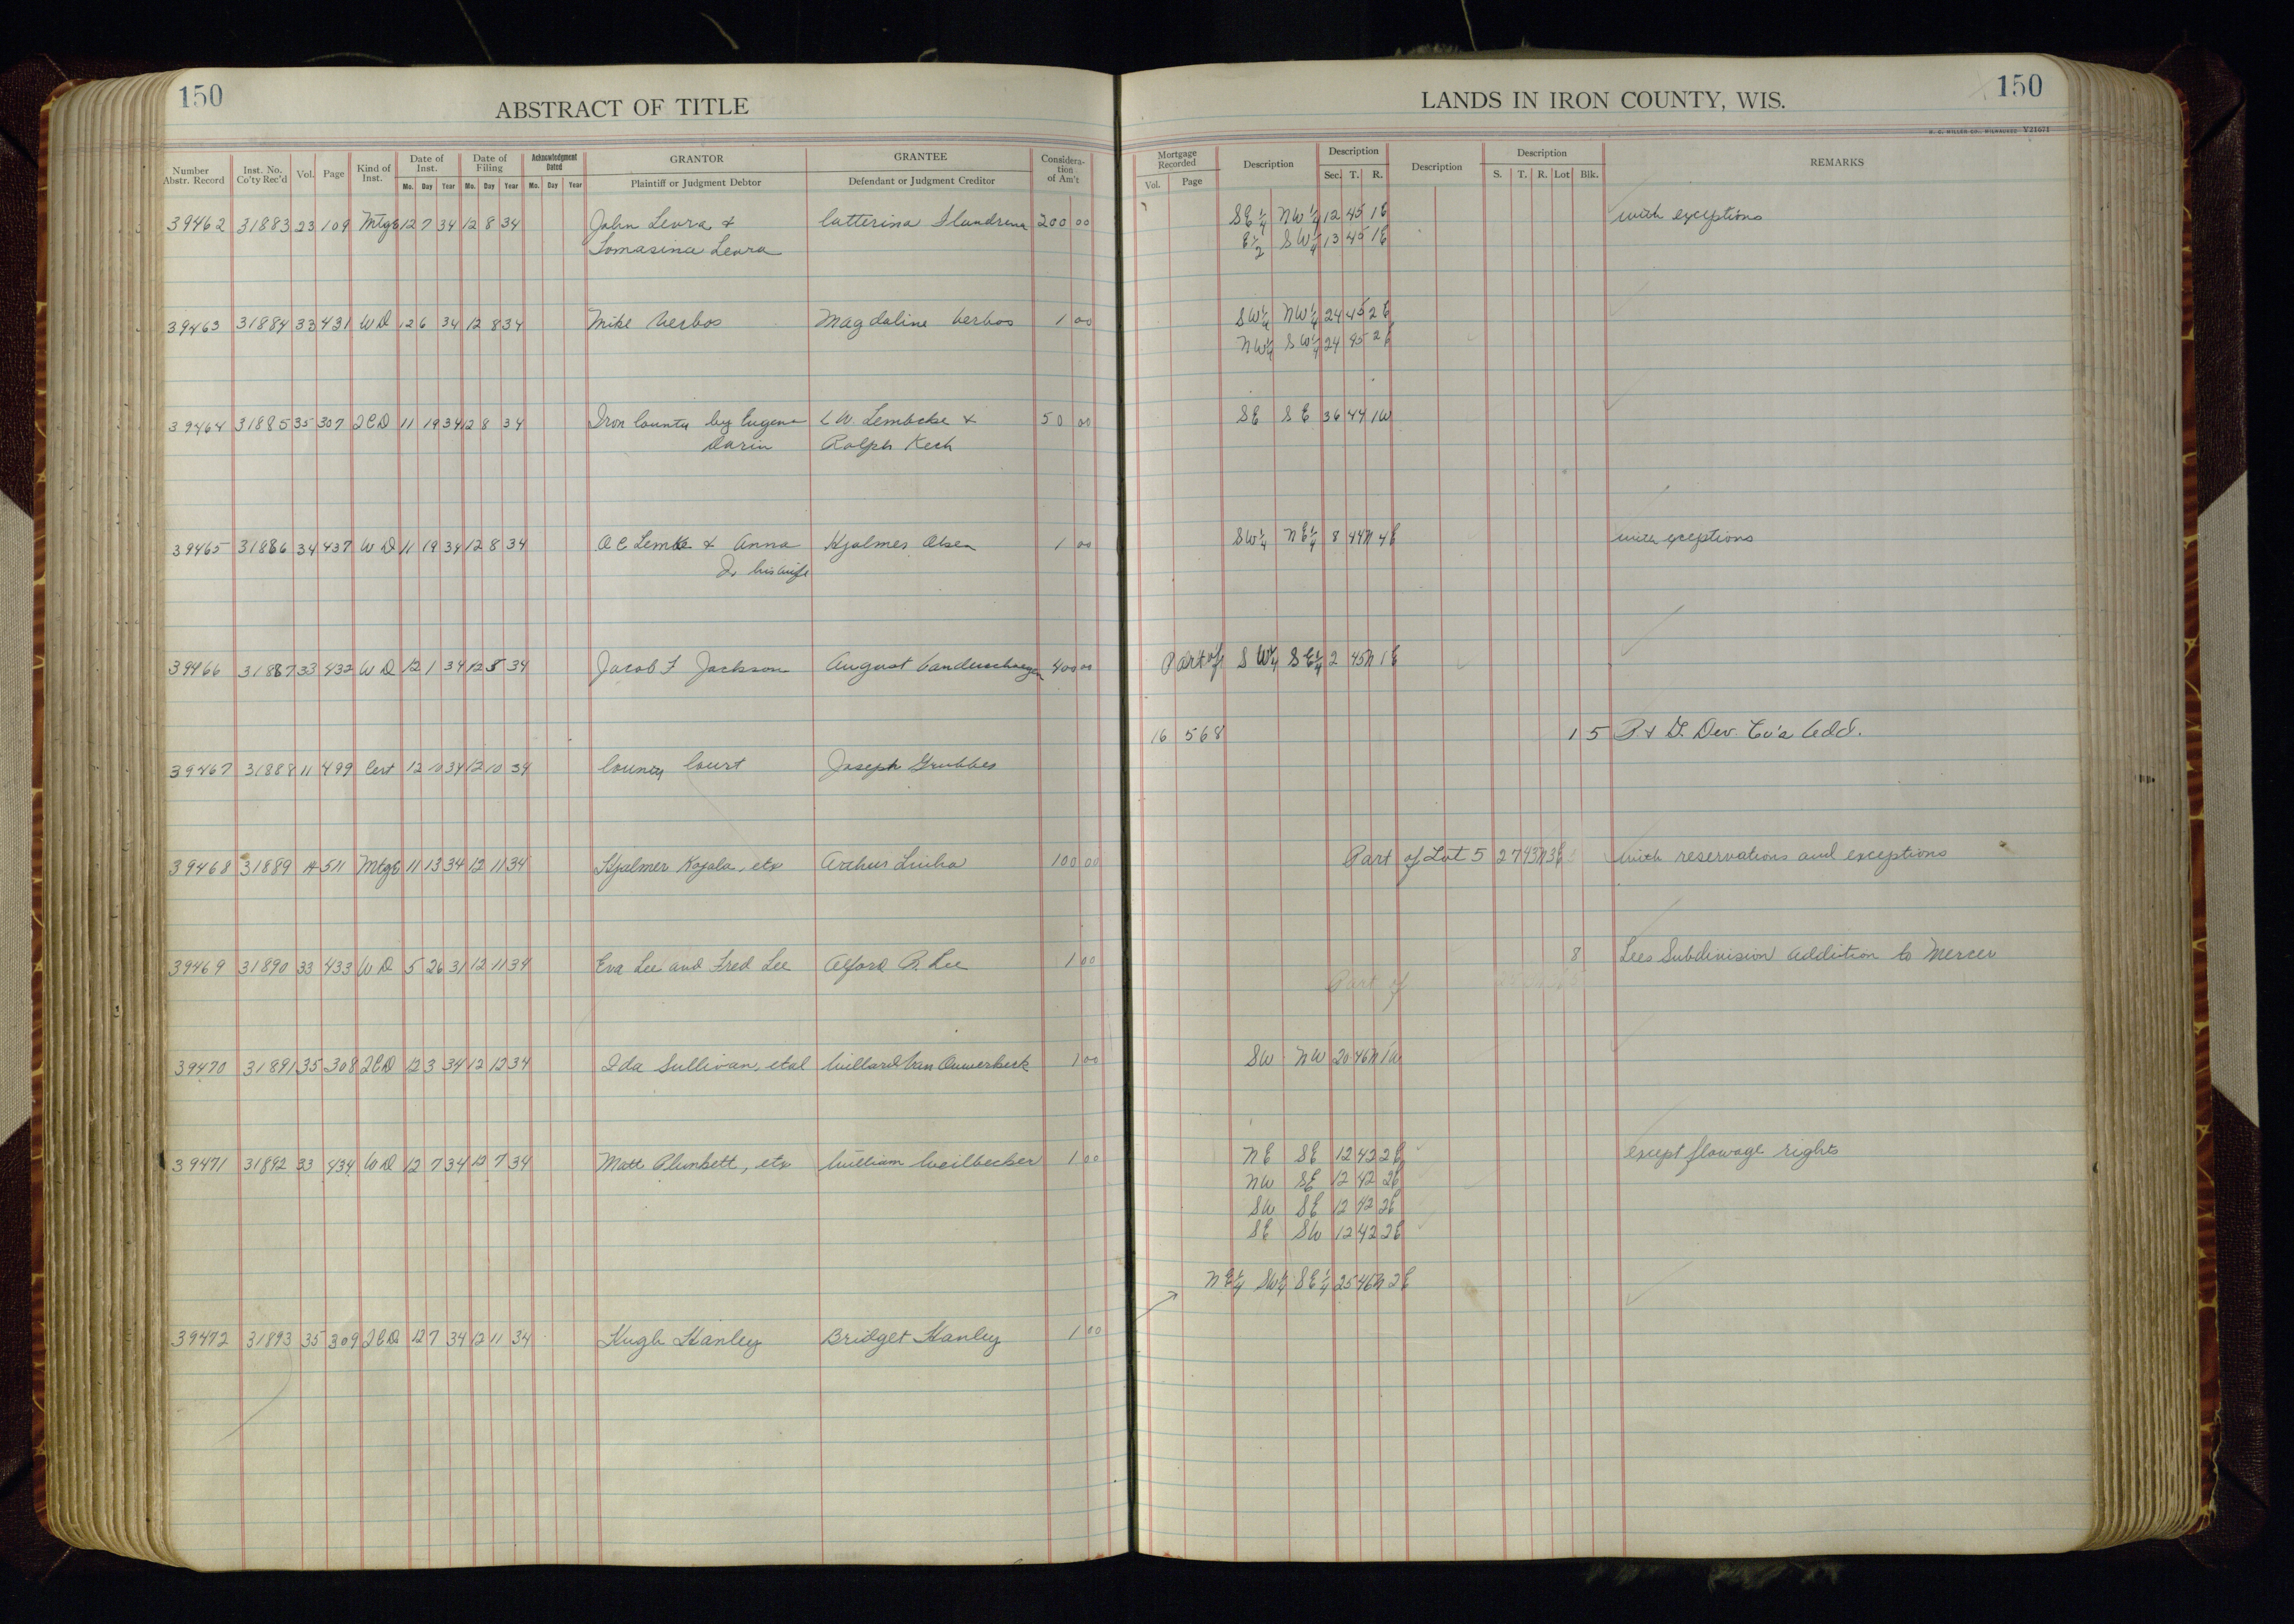 150
ABSTRACT OF TITLE
LANDS IN IRON COUNTY, WIS.
150
Number Abstr. Record
Inst. No. Co'ty Rec'd
Vol.
Page
Kind of Inst.
Date of Inst.
Mo. Day Year
Date of Filing
Mo. Day Year
Acknowledgment Dated
Mo. Day Year
GRANTOR
Plaintiff or Judgment Debtor
GRANTEE
Defendant or Judgment Creditor
Considera-tion of Am't
Mortgage Recorded
Vol. Page
Description
Description
Sec. T. R.
Description
Description
S. T. R. Lot Blk.
REMARKS
39462 31883 23 109 Mtge 12 7 34 12 8 34 John Leora & 200 00 SE 1/4 NW 1/4 12 45 1E with exceptions
Tomasina Leora E 1/2 SW 1/4 13 45 1E
39463 31884 33 431 WD 12 6 34 12 8 34 Mike Verbos Magdaline Verbos 1 00 SW 1/4 NW 1/4 24 45 2E
NW 1/4 SW 1/4 24 45 2E
39464 31885 35 307 QCD 11 19 34 12 8 34 Iron County by Eugene C W. Lembcke & 50 00 SE SE 36 44 1W
Darin Ralph Kech
39465 31886 34 437 WD 11 19 34 12 8 34 A C Lemke & Anna Hjalmer Olsen 1 00 SW 1/4 NE 1/4 8 44N 4E with exceptions
his wife
39466 31887 33 432 WD 12 1 34 12 8 34 Jacob F Jackson August 400 00 Part of SW 1/4 SE 1/4 2 45N 1E
16 568 1 5 P & D. Dev. Co's Add.
39467 31888 11 499 Cert 12 10 34 12 10 34 County Court Joseph Grubbes
39468 31889 A 511 Mtge 11 13 34 12 11 34 Hjalmer Kojola, etx Arthur Linha 100 00 Part of Lot 5 27 43N 3E with reservations and exceptions
39469 31890 33 433 WD 5 26 31 12 11 34 Eva Lee and Fred Lee Alford R. Lee 1 00 8 Lees Subdivision Addition to Mercer
Part of
39470 31891 35 308 QCD 12 3 34 12 12 34 Ida Sullivan, etal Willard Van Ouwerkerk 1 00 SW NW 20 46N 1W
39471 31892 33 434 WD 12 7 34 12 7 34 Matt Plunkett, etx William Weilbecker 1 00 NE SE 12 42 2E except flowage rights
NW SE 12 42 2E
SW SE 12 42 2E
SE SW 12 42 2E
NE 1/4 SW 1/4 SE 1/4 25 46N 2E
39472 31893 35 309 QCD 12 7 34 12 11 34 Hugh Hanley Bridget Hanley 1 00